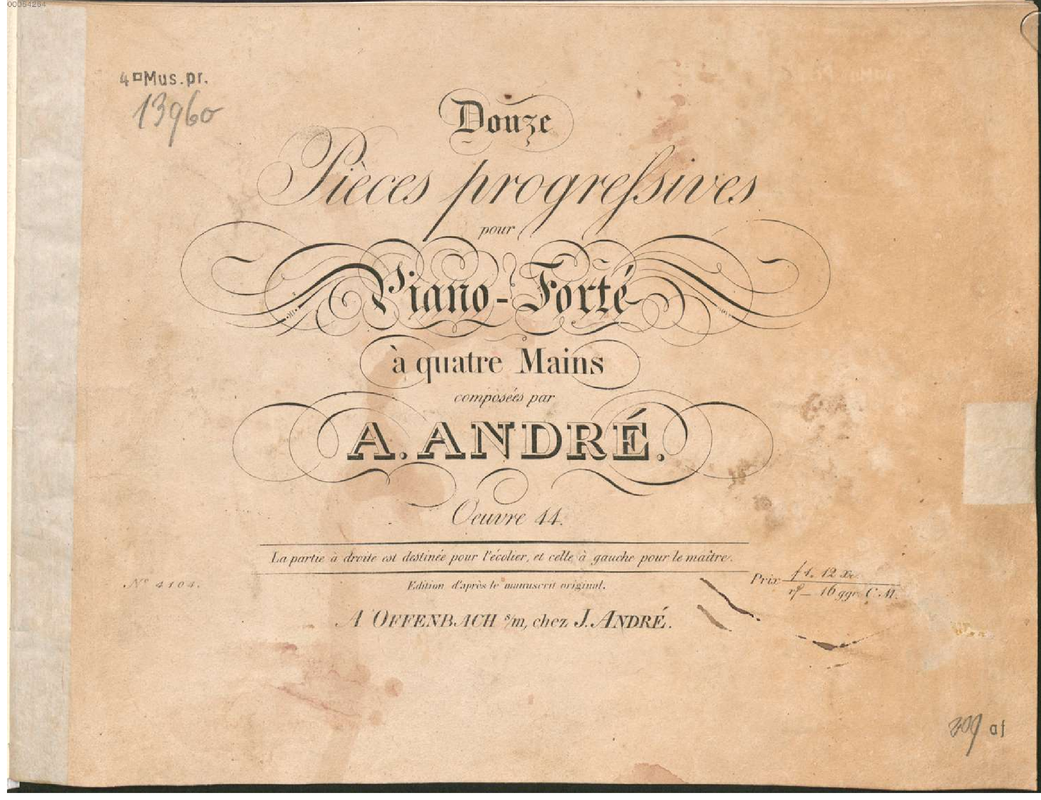 00064284
4°Mus.pr.
13960
Douze
Pièces progreſsives
pour
Piano-Forté
à quatre Mains
composées par
A. ANDRÉ.
Oeuvre 44.
La partie à droite est destinée pour l'écolier, et celle à gauche pour le maître.
Nº 4104.
Edition d'après le manuscrit original.
Prix f 1. 12 Xr.
16 ggr. C. M.
A OFFENBACH s/m, chez J. ANDRÉ.
af